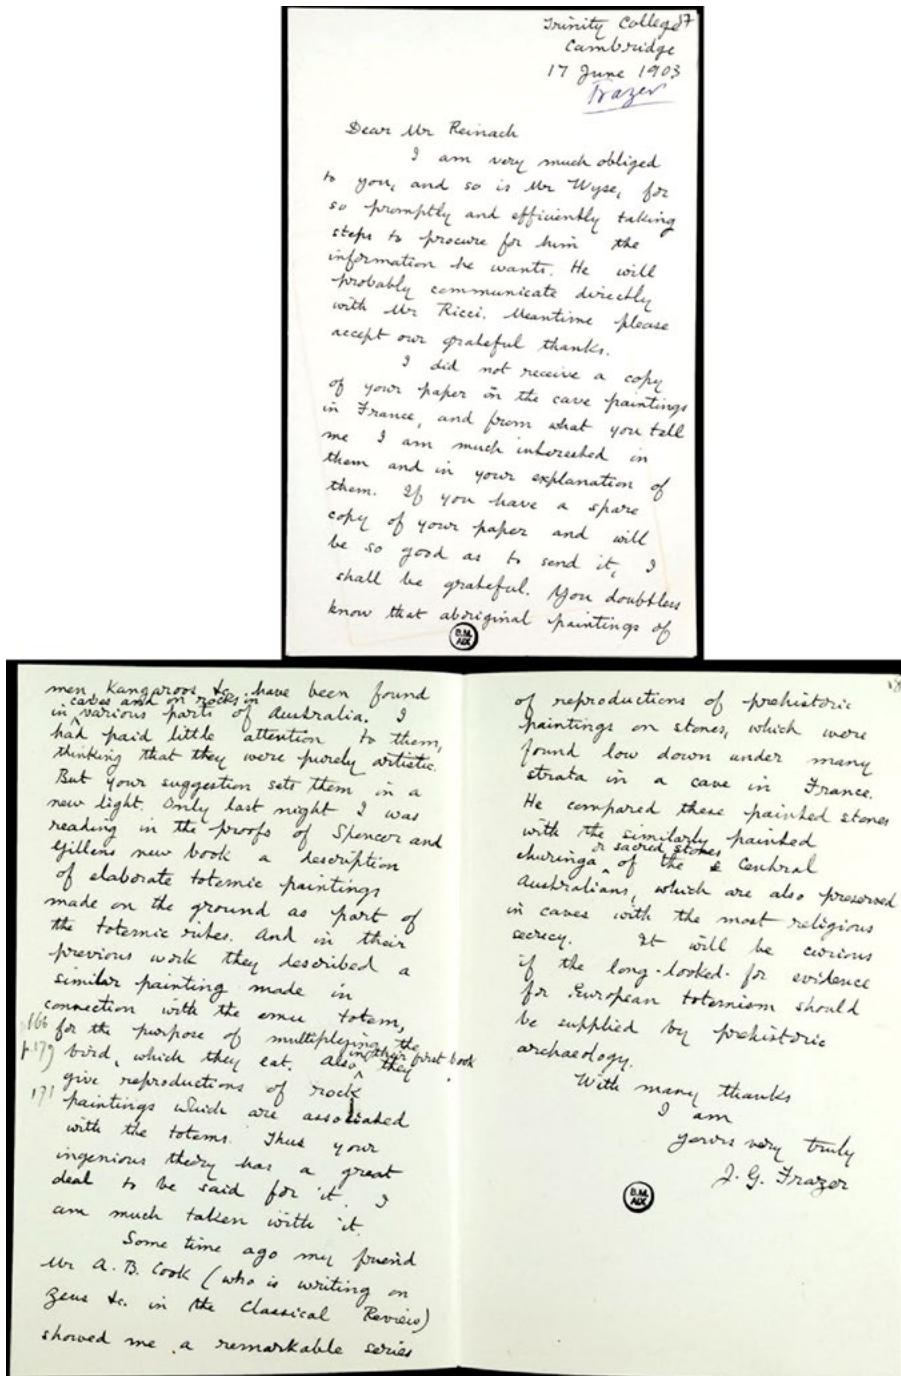 Trinity College 57
Cambridge
17 June 1903
Frazer
Dear Mr Reinach
I am very much obliged
to you, and so is Mr Wyse, for
so promptly and efficiently taking
steps to procure for him the
information he wants. He will
probably communicate directly
with Mr Ricci. Meantime please
accept our grateful thanks.
I did not receive a copy
of your paper on the cave paintings
in France, and from what you tell
me I am much interested in
them and in your explanation of
them. If you have a spare
copy of your paper and will
be so good as to send it, I
shall be grateful. You doubtless
know that aboriginal paintings of
B.M.
AIX
men, Kangaroos &c. have been found
caves and on rocks in
in various parts of Australia. I
had paid little attention to them,
thinking that they were purely artistic.
But your suggestion sets them in a
new light. Only last night I was
reading in the proofs of Spencer and
Gillens new book a description
of elaborate totemic paintings
made on the ground as part of
the totemic rites. And in their
previous work they described a
similar painting made in
connection with the emu totem,
166 for the purpose of multiplying the
in their first book
p.179 bird, which they eat. Also they
give reproductions of rock
171 paintings which are associated
with the totems. Thus your
ingenious theory has a great
deal to be said for it. I
am much taken with it.
Some time ago my friend
Mr A. B. Cook (who is writing on
Zeus &c. in the Classical Review)
showed me a remarkable series
of reproductions of prehistoric
paintings on stones, which were
found low down under many
strata in a cave in France.
He compared these painted stones
with the similarly painted
or sacred stones
churinga of the Central
Australians, which are also preserved
in caves with the most religious
secrecy. It will be curious
if the long-looked-for evidence
for European totemism should
be supplied by prehistoric
archaeology.
With many thanks
I am
Yours very truly
J. G. Frazer
B.M.
AIX